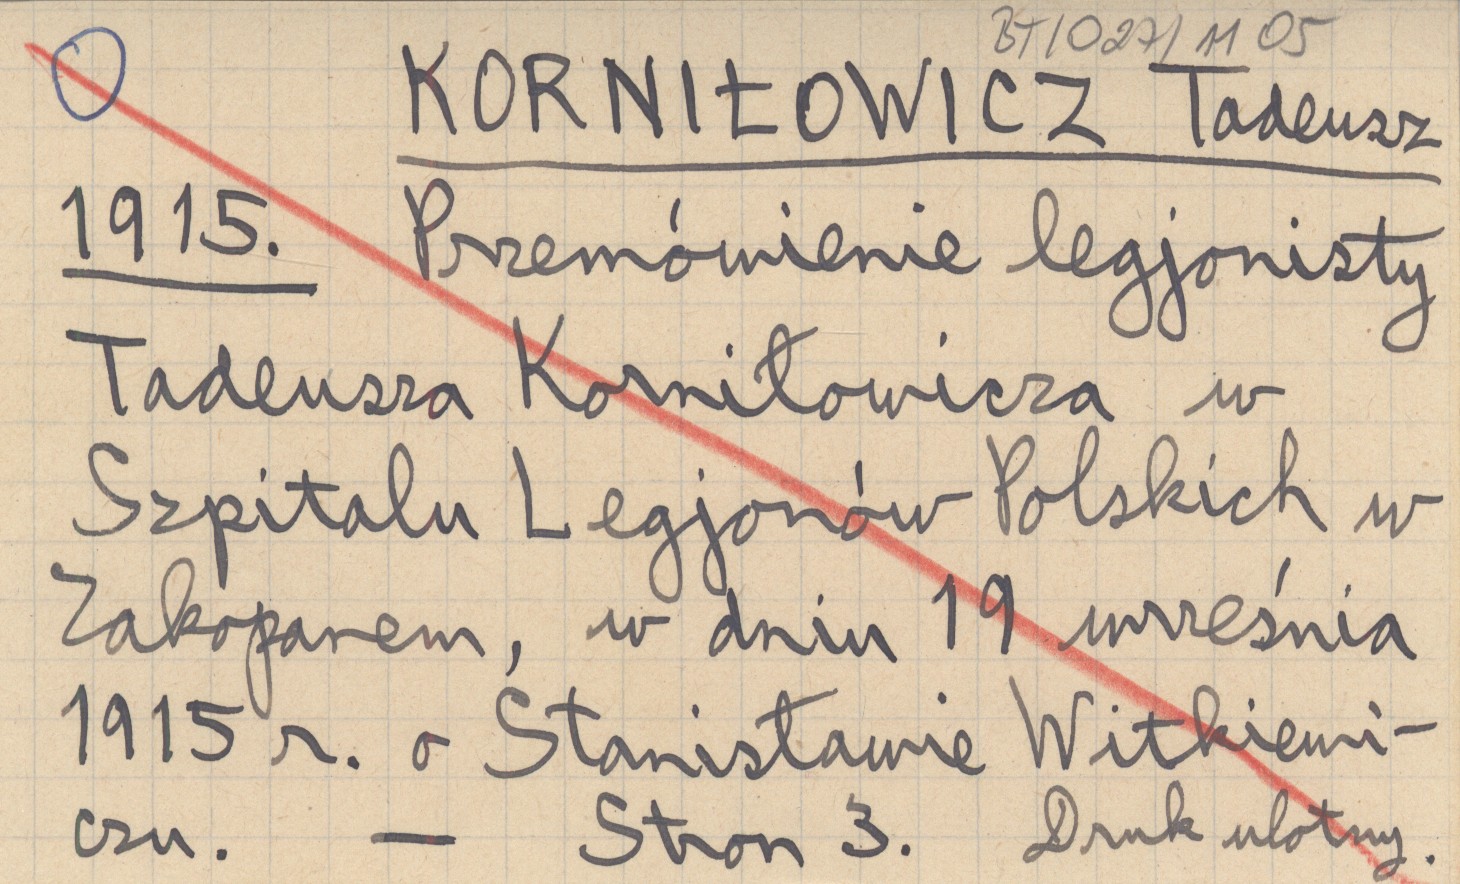 BT/027/1105
KORNIŁOWICZ Tadeusz
1915. Przemówienie legjonisty
Tadeusza Korniłowicza w
Szpitalu Legjonów Polskich w
Zakopanem, w dniu 19 września
1915 r. o Stanisławie Witkiewi-
czu. — Stron 3. Druk ulotny.